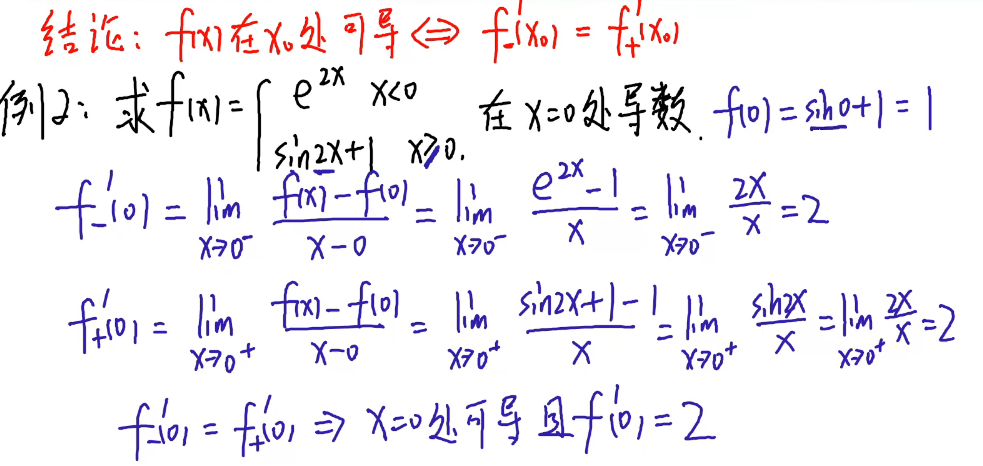 结论: f(x)在x₀处可导⇔ f₋'(x₀) = f₊'(x₀)
例2: 求f(x)={ e^{2x} x<0 ; sin2x+1 x≥0. 在x=0处导数. f(0)=sin0+1=1
f₋'(0) = lim_{x→0⁻} (f(x)-f(0))/(x-0) = lim_{x→0⁻} (e^{2x}-1)/x = lim_{x→0⁻} 2x/x = 2
f₊'(0) = lim_{x→0⁺} (f(x)-f(0))/(x-0) = lim_{x→0⁺} (sin2x+1-1)/x = lim_{x→0⁺} sin2x/x = lim_{x→0⁺} 2x/x = 2
f₋'(0) = f₊'(0) ⇒ x=0处可导且f'(0) = 2